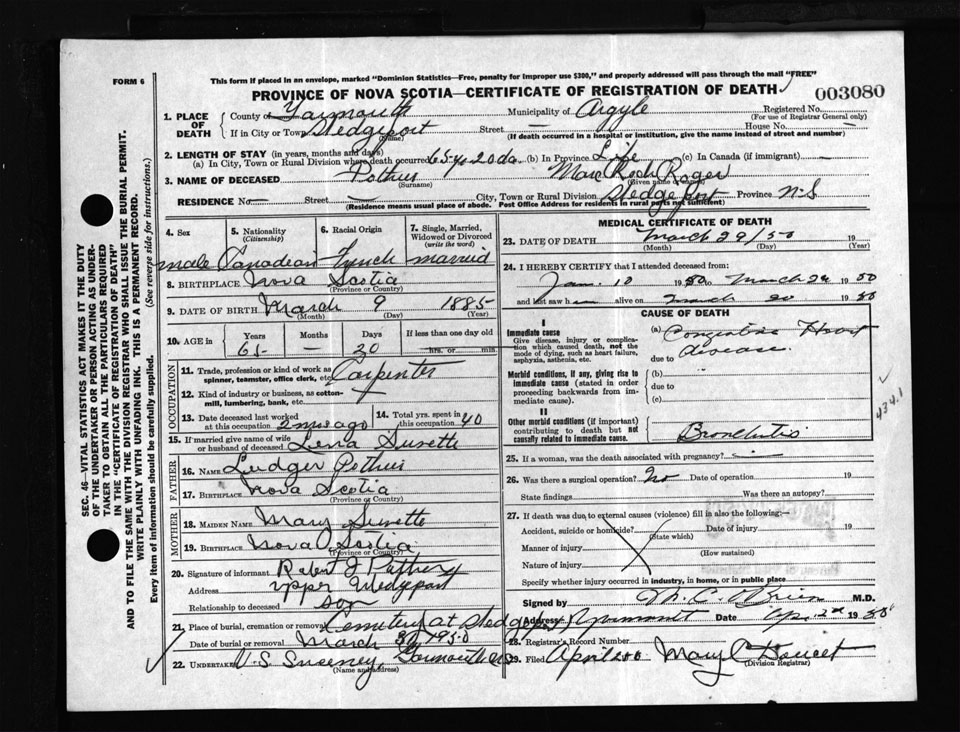 FORM 6
This form if placed in an envelope, marked "Dominion Statistics—Free, penalty for improper use $300," and properly addressed will pass through the mail "FREE"
PROVINCE OF NOVA SCOTIA—CERTIFICATE OF REGISTRATION OF DEATH
003080
1. PLACE OF DEATH
County of Yarmouth
Municipality of Argyle
Registered No.
(For use of Registrar General only)
If in City or Town Wedgeport
(Name)
Street —
House No. —
(If death occurred in a hospital or institution, give the name instead of street and number)
2. LENGTH OF STAY (in years, months and days)
(a) In City, Town or Rural Division where death occurred 65 yr 20 da (b) In Province Life (c) In Canada (if immigrant) —
3. NAME OF DECEASED Pothier
(Surname)
Marc Roch Roger
(Given name or names)
RESIDENCE No. — Street
City, Town or Rural Division Wedgeport Province N.S
(Residence means usual place of abode. Post Office Address for residents in rural parts not sufficient)
4. Sex
5. Nationality (Citizenship)
6. Racial Origin
7. Single, Married, Widowed or Divorced (write the word)
male Canadian French married
8. BIRTHPLACE Nova Scotia
(Province or Country)
9. DATE OF BIRTH March 9 1885
(Month) (Day) (Year)
10. AGE in
Years Months Days If less than one day old
65 — 20 hrs. or min.
OCCUPATION
11. Trade, profession or kind of work as spinner, teamster, office clerk, etc. Carpenter
12. Kind of industry or business, as cotton-mill, lumbering, bank, etc.
13. Date deceased last worked at this occupation 2 mos ago
14. Total yrs. spent in this occupation 40
15. If married give name of wife or husband of deceased Lena Surette
FATHER
16. Name Ludger Pothier
17. Birthplace Nova Scotia
(Province or Country)
MOTHER
18. MAIDEN NAME Mary Surette
19. BIRTHPLACE Nova Scotia
(Province or Country)
20. Signature of informant Robert J Pothier
Address Upper Wedgeport
Relationship to deceased son
21. Place of burial, cremation or removal Cemetery at Wedgeport
Date of burial or removal March 31 1950
22. UNDERTAKER V.S. Sweeney, Yarmouth N.S
(Name and address)
MEDICAL CERTIFICATE OF DEATH
23. DATE OF DEATH March 29/50 19
(Month) (Day) (Year)
24. I HEREBY CERTIFY that I attended deceased from:
Jan. 10 1950 to March 29 1950
and last saw him alive on March 20 1950
CAUSE OF DEATH
I
Immediate cause
Give disease, injury or complication which caused death, not the mode of dying, such as heart failure, asphyxia, asthenia, etc.
(a) Congestive Heart disease.
due to
Morbid conditions, if any, giving rise to immediate cause (stated in order proceeding backwards from immediate cause).
(b)
due to
(c)
434.1
II
Other morbid conditions (if important) contributing to death but not causally related to immediate cause.
Bronchitis
25. If a woman, was the death associated with pregnancy? —
26. Was there a surgical operation? No Date of operation 19
State findings Was there an autopsy?
27. If death was due to external causes (violence) fill in also the following:
Accident, suicide or homicide? Date of injury 19
(State which)
Manner of injury
(How sustained)
Nature of injury
Specify whether injury occurred in industry, in home, or in public place
Signed by M. C. O'Brien M.D.
Address Date Apr. 2nd 1950
28. Registrar's Record Number
29. Filed April 2nd Mary C Doucet
(Division Registrar)
SEC. 46—VITAL STATISTICS ACT MAKES IT THE DUTY OF THE UNDERTAKER OR PERSON ACTING AS UNDERTAKER TO OBTAIN ALL THE PARTICULARS REQUIRED IN THE "CERTIFICATE OF REGISTRATION OF DEATH" AND TO FILE THE SAME WITH THE DIVISION REGISTRAR WHO SHALL ISSUE THE BURIAL PERMIT.
WRITE PLAINLY WITH UNFADING INK. THIS IS A PERMANENT RECORD.
Every item of information should be carefully supplied. (See reverse side for instructions.)